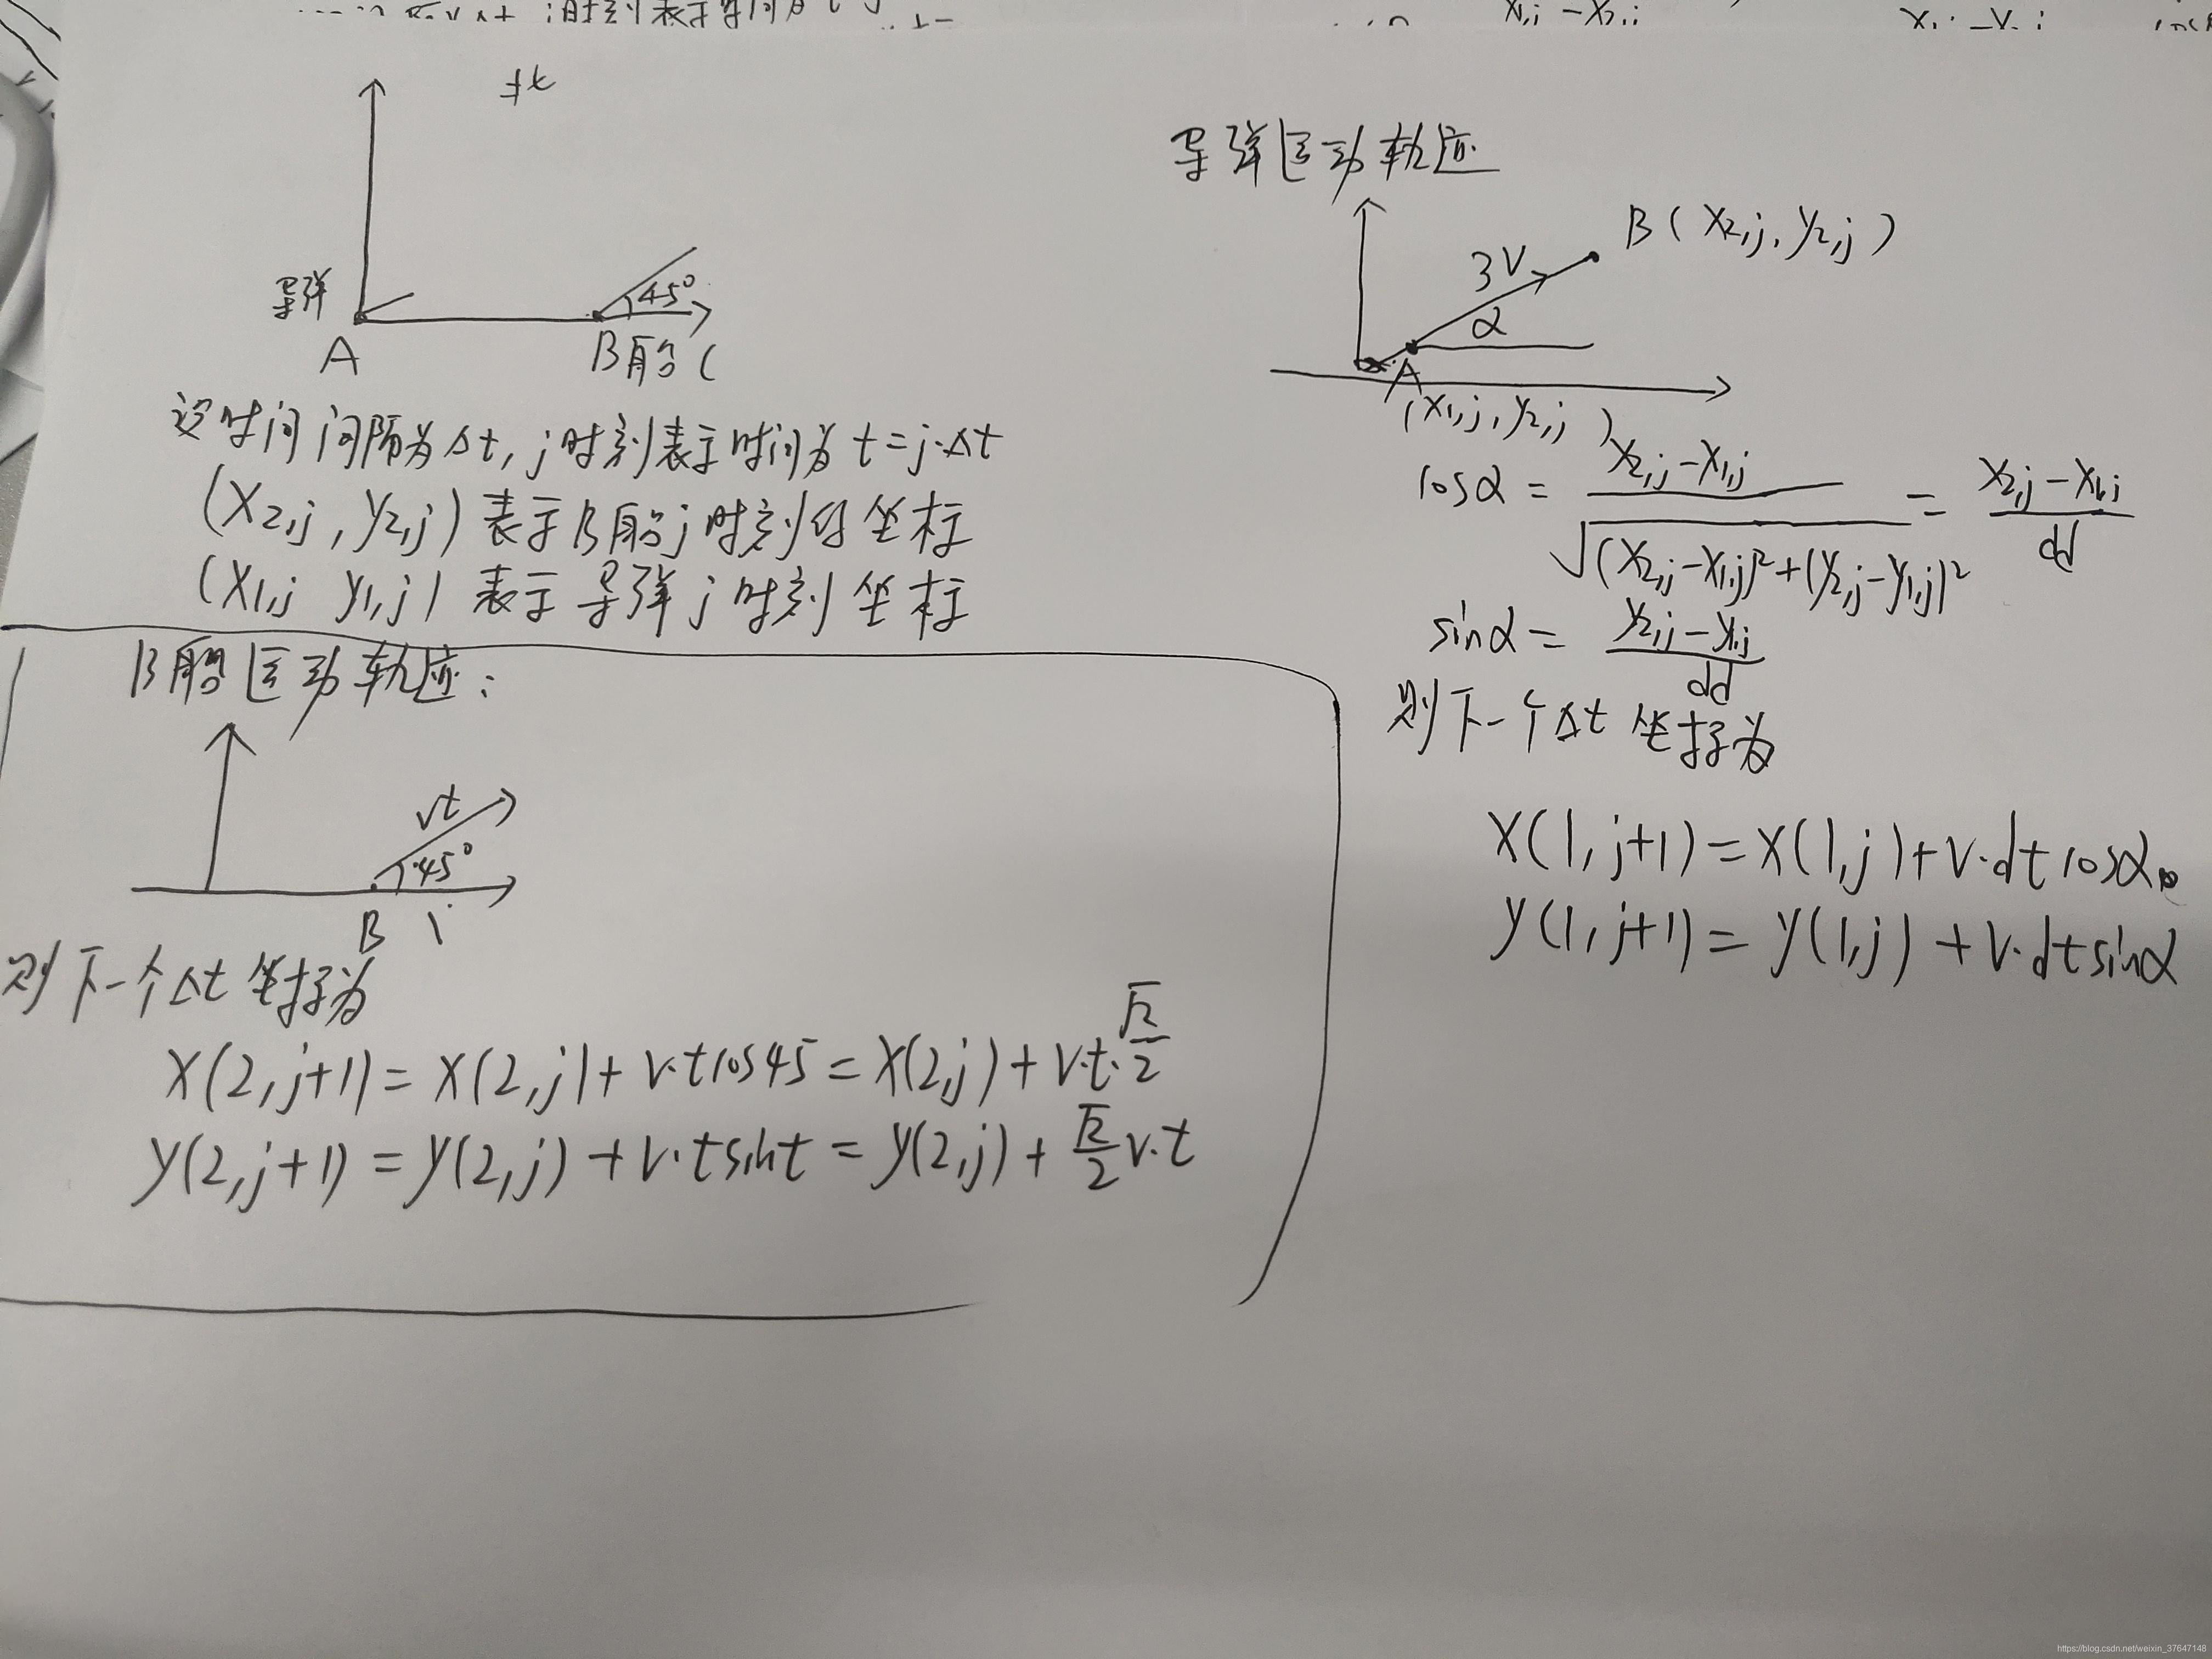 北
导弹
A
45°
B船
设时间间隔为Δt, j时刻表示时间为 t=j·Δt
(X2,j , y2,j) 表示B船j时刻的坐标
(X1,j y1,j) 表示导弹j时刻坐标
B船运动轨迹:
vt
45°
B
则下一个Δt 坐标为
X(2,j+1) = X(2,j) + v·tcos45 = X(2,j) + v·t·√2/2
y(2,j+1) = y(2,j) + v·tsint = y(2,j) + √2/2 v·t
导弹运动轨迹
B(X2,j, y2,j)
3V
α
A
(X1,j, y2,j)
cosα = X2,j-X1,j / √(X2,j-X1,j)²+(y2,j-y1,j)² = X2,j-X1,j / dd
sinα = y2,j-y1,j / dd
则下一个Δt 坐标为
X(1,j+1) = X(1,j) + v·dt cosα
y(1,j+1) = y(1,j) + v·dt sinα
https://blog.csdn.net/weixin_37647148